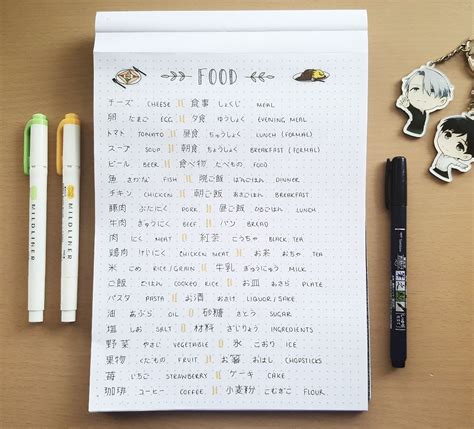 FOOD
チーズ CHEESE || 食事 しょくじ MEAL
卵 たまご EGG || 夕食 ゆうしょく EVENING MEAL
トマト TOMATO || 昼食 ちゅうしょく LUNCH (FORMAL)
スープ SOUP || 朝食 ちょうしょく BREAKFAST (FORMAL)
ビール BEER || 食べ物 たべもの FOOD
魚 さかな FISH || 晩ご飯 ばんごはん DINNER
チキン CHICKEN || 朝ご飯 あさごはん BREAKFAST
豚肉 ぶたにく PORK || 昼ご飯 ひるごはん LUNCH
牛肉 ぎゅうにく BEEF || パン BREAD
肉 にく MEAT || 紅茶 こうちゃ BLACK TEA
鶏肉 けいにく CHICKEN MEAT || お茶 おちゃ TEA
米 こめ RICE/GRAIN || 牛乳 ぎゅうにゅう MILK
ご飯 ごはん COOKED RICE || お皿 おさら PLATE
パスタ PASTA || お酒 おさけ LIQUOR/SAKE
油 あぶら OIL || 砂糖 さとう SUGAR
塩 しお SALT || 材料 ざいりょう INGREDIENTS
野菜 やさい VEGETABLE || 氷 こおり ICE
果物 くだもの FRUIT || お箸 おはし CHOPSTICKS
苺 いちご STRAWBERRY || ケーキ CAKE
珈琲 コーヒー COFFEE || 小麦粉 こむぎこ FLOUR
MILDLINER
MILDLINER